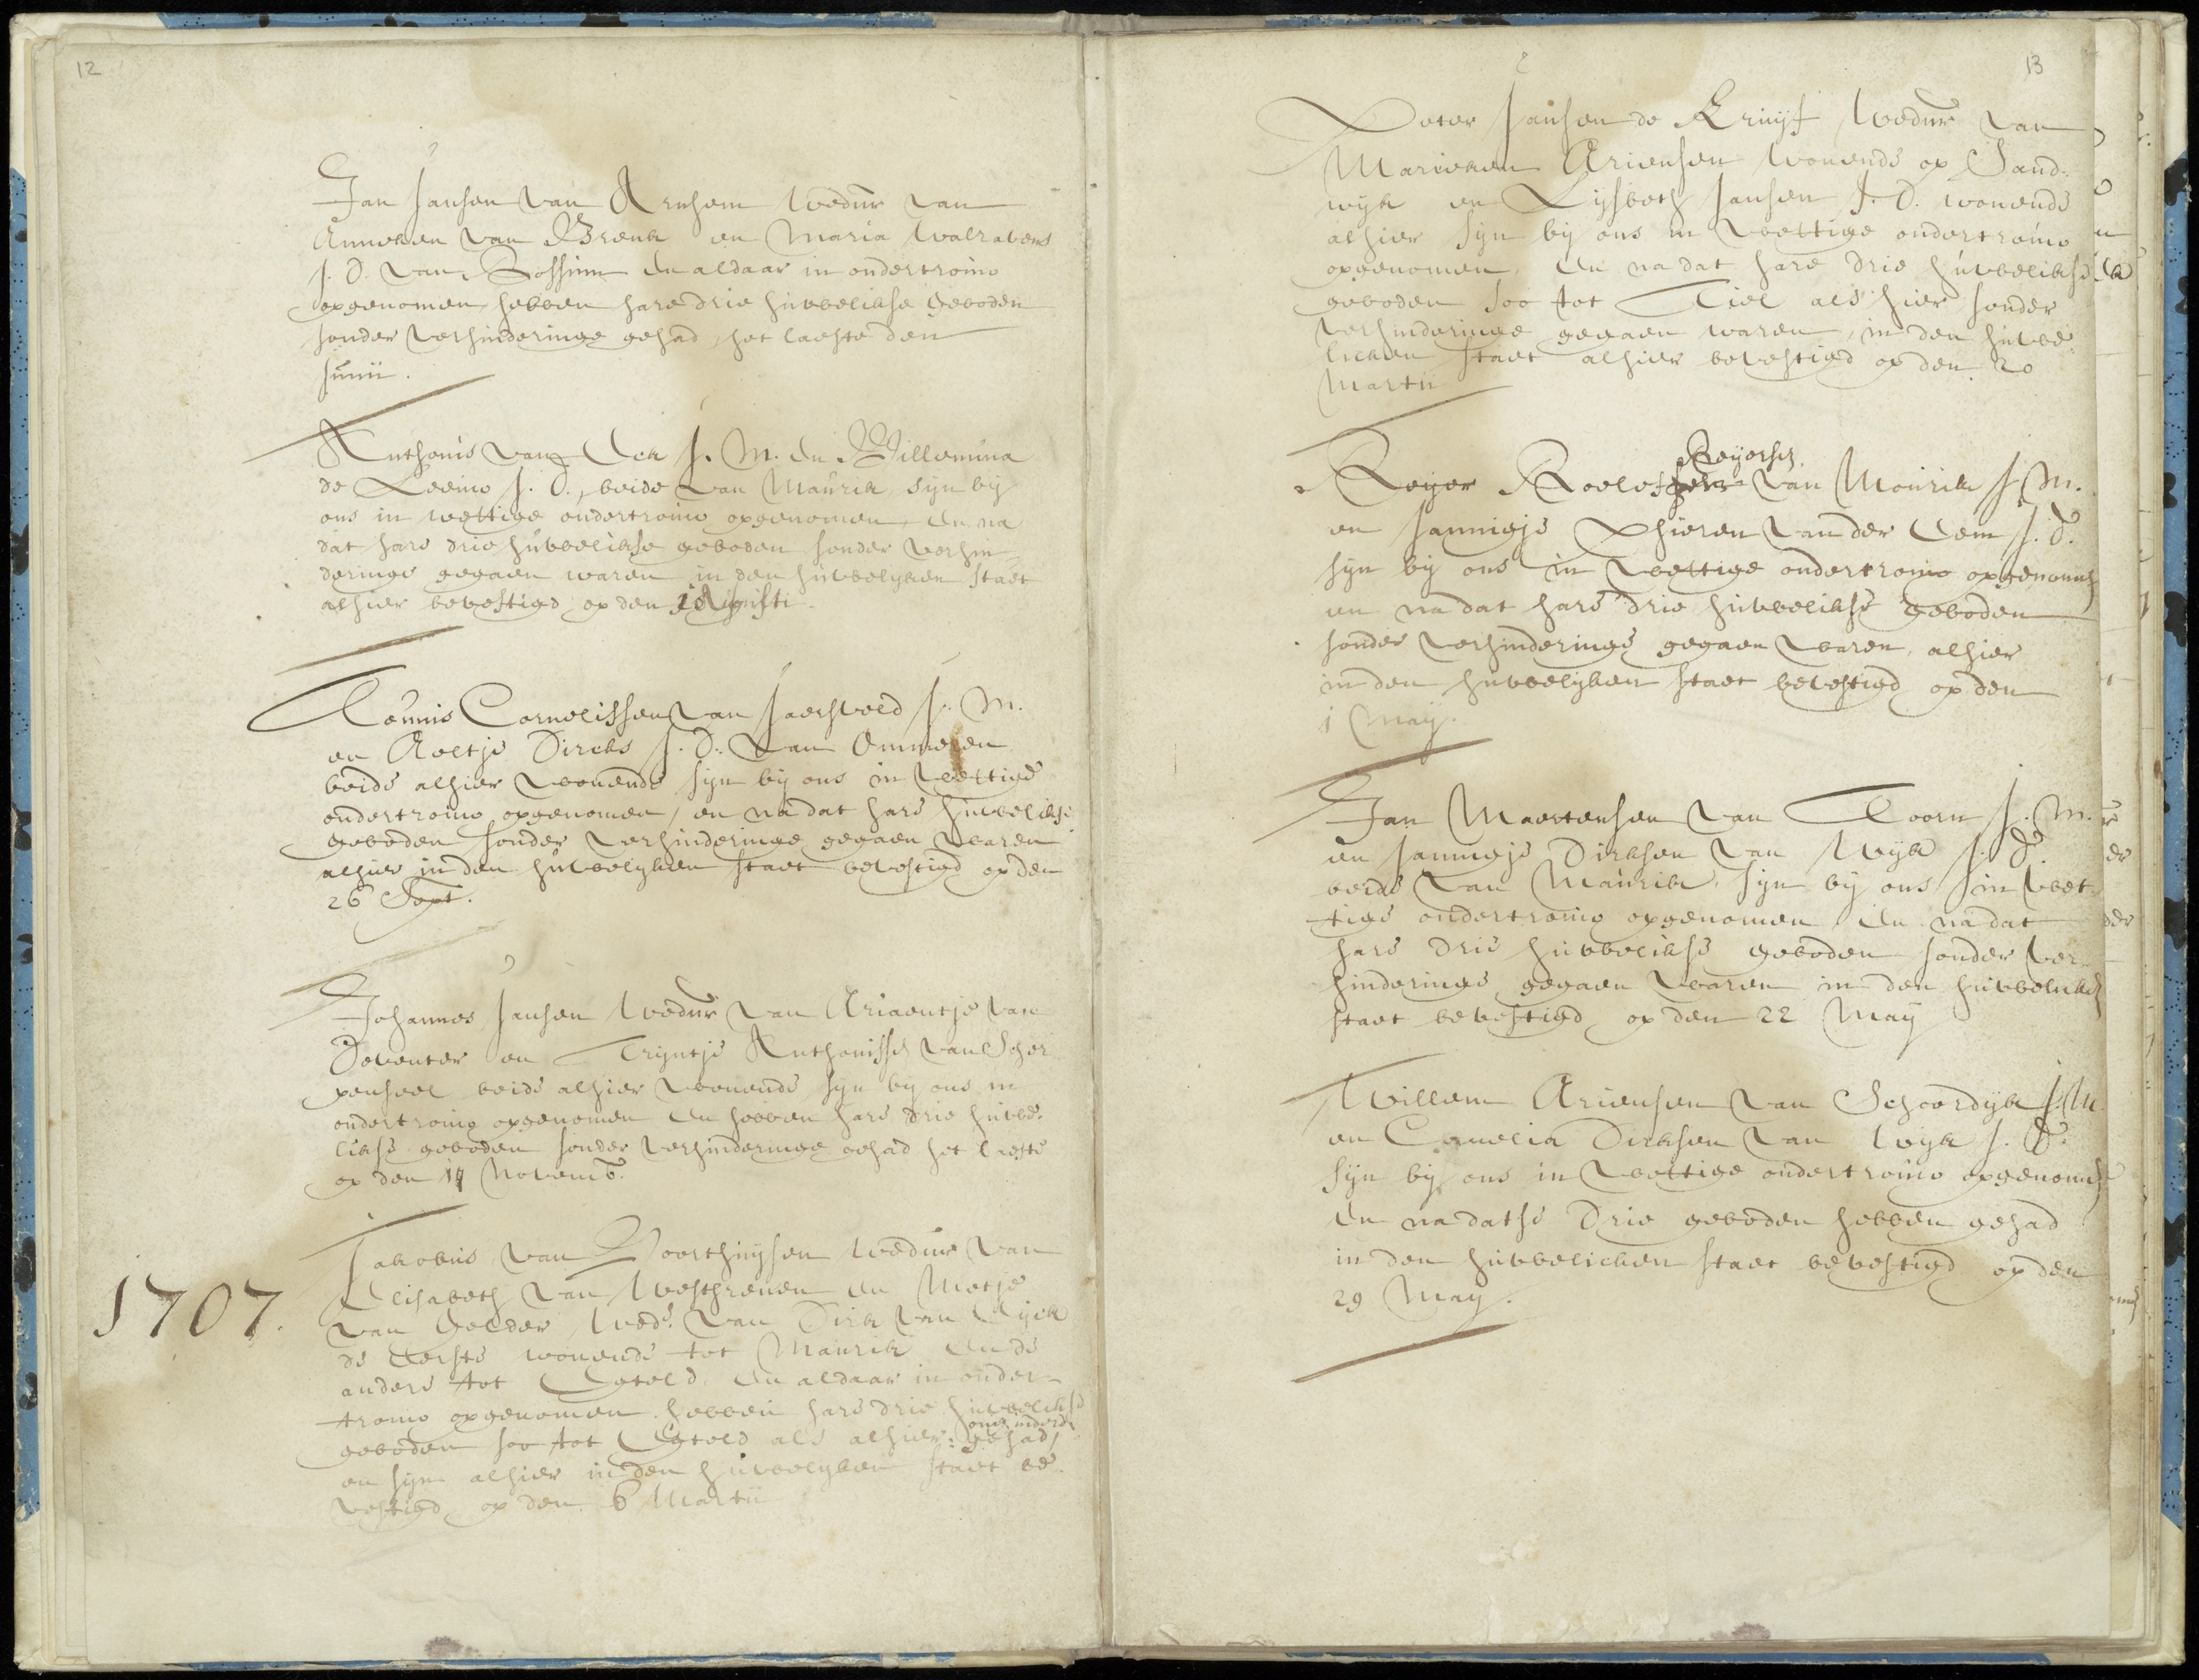 12
Jan Jansen van Arnhem Weduwr van
Anneken van Brenk en Maria Walravens
J. D. van Rossum en aldaar in ondertrouw
opgenomen, hebben hare drie huwelikse Geboden
sonder verhinderinge gehad, het laeste den
Junii.
Anthonis van Eck J. M. en Willemina
de Leeuw J. D., beide van Maurik, sijn bij
ons in wettige ondertrouw opgenomen, en na
dat hare drie huwelikse geboden sonder verhin¬
deringe gegaen waren in den huwelyken staet
alhier bevestigd op den Augusti
Teunis Cornelissen van Jaersveld J. M.
en Aeltje Dircks J. D. van Ommeren
beide alhier wonende sijn bij ons in wettige
ondertrouw opgenomen, en na dat hare huwelikse
geboden sonder verhinderinge gegaen waren
alhier in den huwelyken staet bevestigd op den
26 Sept.
Johannes Jansen Weduwr van Ariaentje van
Deventer en Tryntje Anthonisse van Scher¬
penseel beide alhier wonende sijn bij ons in
ondertrouw opgenomen en hebben hare drie huwe¬
likse geboden sonder verhinderinge gehad het laeste
op den 14 Novemb.
1707.
Jakobus van Voorthuysen Weduwr van
Elisabeth van Westhrenen en Metje
van Gelder, Wede. van Dirk van Eyck
de eerste wonende tot Maurik en de
andere tot Ysveld. en aldaar in onder¬
trouw opgenomen hebben hare drie huwelikse
onverhinderd
geboden soo tot als alhier gehad,
en sijn alhier in den huwelyken staet be¬
vestigd op den 6 Martii
13
Peter Jansen de Kruyf Weduwr van
Marieken Ariensen wonende op Sand¬
wyk en Lysbeth Jansen J. D. wonende
alhier sijn bij ons in wettige ondertrouw
opgenomen, en na dat hare drie huwelikse
geboden soo tot Tiel als hier sonder
verhinderinge gegaen waren, in den huwe¬
lieken staet alhier bevestigd op den 20
Martii
Reyersz
Reyer Roelofsen van Maurik J. M.
en Jannigje van der Eem J. D.
sijn bij ons in wettige ondertrouw opgenomen
en na dat hare drie huwelikse geboden
sonder verhinderinge gegaen waren, alhier
in den huwelyken staet bevestigd op den
1 May.
Jan Maertensen van Toorn J. M.
en Jannigje Dirksen van Wyk J. D.
beide van Maurik, sijn bij ons in wet¬
tige ondertrouw opgenomen en na dat
hare drie huwelikse geboden sonder ver¬
hinderinge gegaen waren in den huweliken
staet bevestigd op den 22 May
Willem Ariensen van Schoordyk J. M
en Cornelia Dirksen van Wyk J. D.
sijn bij ons in wettige ondertrouw opgenomen
en na datse drie geboden hebben gehad
in den huwelicken staet bevestigd op den
29 May.